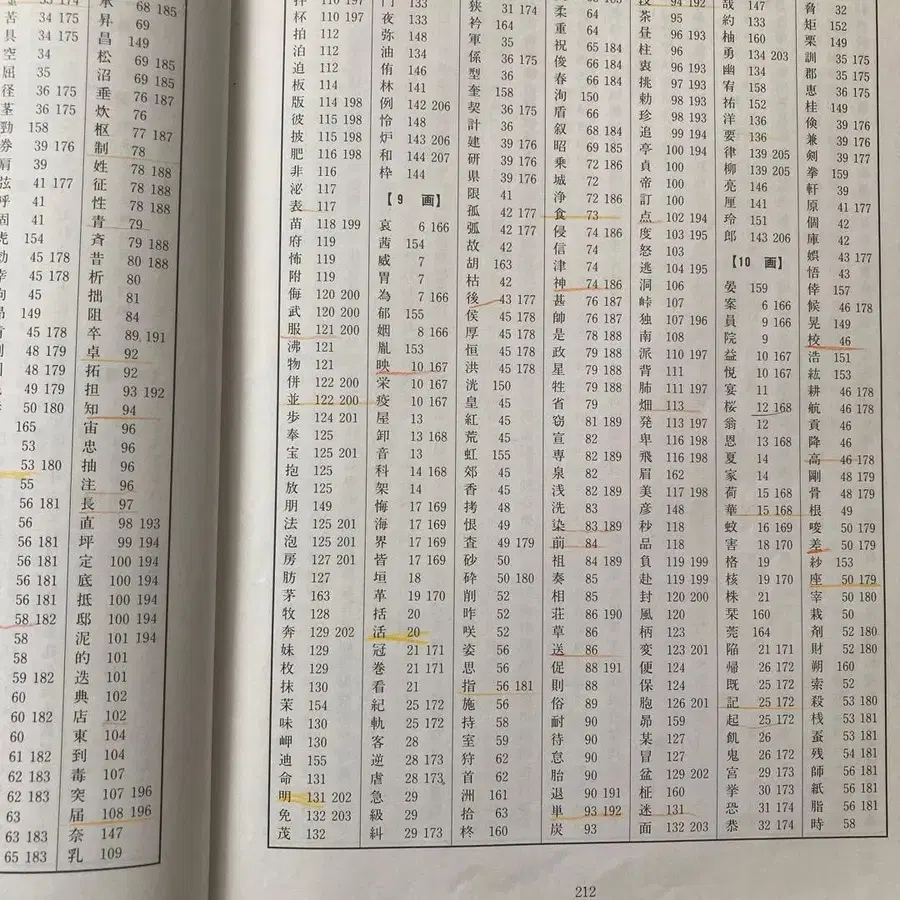 昇 69
昌 149
松 69 185
沼 69 185
垂 76 187
炊 76
枢 77 187
制 78
姓 78 188
征 78 188
性 78 188
青 79
斉 79 188
昔 80 188
析 80
拙 81
阻 84
卒 89,191
卓 92
拓 92
担 93 192
知 94
宙 96
忠 96
抽 96
注 96
長 97
直 98 193
坪 99 194
定 100 194
底 100 194
抵 100 194
邸 100 194
泥 101 194
的 101
迭 101
典 102
店 102
東 104
到 104
毒 107
突 107 196
届 108 196
奈 147
乳 109
杯 110 197
拍 112
泊 112
迫 112
板 114
版 114 198
彼 115 198
披 115 198
肥 116 198
非 116
泌 117
表 117
苗 118 199
府 119
怖 119
附 119
侮 120 200
武 120 200
服 121 200
沸 121
物 121
併 122 200
並 122 200
歩 124 201
奉 125
宝 125 201
抱 125
放 125
朋 149
法 125 201
泡 125 201
房 127 201
肪 127
茅 163
牧 128
奔 129 202
妹 129
枚 129
抹 130
茉 154
味 130
岬 130
迪 155
命 131
明 131 202
免 132 203
茂 132
門 133
夜 133
弥 148
油 134
侑 146
林 141
例 142 206
怜 148
炉 143 206
和 144 207
枠 144
【9 画】
哀 6 166
茜 154
威 7
胃 7
為 7 166
郁 155
姻 8 166
胤 153
映 10 167
栄 10 167
疫 10 167
屋 13
卸 13 168
音 13
科 14 168
架 14
悔 17 169
海 17 169
界 17 169
皆 17 169
垣 18
革 19 170
括 20
活 20
冠 21 171
巻 21 171
看 21
紀 25 172
軌 25 172
客 28
逆 28 173
虐 28 173
急 29
級 29
糾 29 173
狭 31 174
衿 164
軍 35
係 36 175
型 36
契 36 175
計 36
建 39 176
研 39 176
県 39 176
限 41
孤 42 177
弧 42 177
故 42
胡 163
枯 42
後 43 177
侯 45 178
厚 45 178
恒 45 178
洪 45 178
洸 150
皇 45
紅 45
荒 45
虹 155
郊 45
香 45
拷 48
恨 49
査 49 179
砂 50
砕 50 180
削 52
昨 52
咲 52
姿 56
思 56
指 56 181
施 56
持 58
室 59
狩 62
首 62
洲 161
拾 63
柊 160
柔 64
重 64
祝 65 184
俊 66 184
春 66 184
洵 150
盾 66
叙 68 184
昭 69 185
乗 72 186
城 72
浄 72 186
食 73
侵 74 186
信 74
津 74
神 74 186
甚 76 187
帥 76 187
是 78 188
政 79 188
星 79 188
牲 79 188
省 79
窃 81 189
宣 82
専 82 189
泉 82
浅 82 189
洗 83
染 83 189
前 84
祖 84 189
奏 85
相 85
荘 86 190
草 86
送 86
促 88 191
則 88
俗 89
耐 90
待 90
怠 90
胎 90
退 90 191
単 93 192
炭 93
段 94 192
茶 95
昼 96 193
柱 96
衷 96 193
挑 97 193
勅 98 193
珍 98 193
追 99 194
亭 100 194
貞 100
帝 100
訂 100
点 102 194
度 103 195
怒 103
逃 104 195
洞 106
峠 107
独 107 196
南 108
派 110 197
背 111
肺 111 197
畑 113
発 113 197
卑 116 198
飛 116 198
眉 162
美 117 198
彦 148
秒 118
品 118
負 119 199
赴 119 199
封 120 200
風 120
柄 123
変 123 201
便 124
保 124
胞 126 201
昴 159
某 127
冒 127
盆 129 202
柾 160
迷 131
面 132 203
哉 147
約 133
柚 160
勇 134 203
幽 134
宥 158
祐 152
洋 136
要 136
律 139 205
柳 139 205
亮 146
厘 141
玲 151
郎 143 206
【10 画】
晏 159
案 6 166
員 9 166
院 9
益 10 167
悦 10 167
宴 11
桜 12 168
翁 12
恩 13 168
夏 14
家 14
荷 15 168
華 15 168
蚊 16 169
害 18 170
格 19
核 19 170
株 21
栞 160
莞 164
陥 21 171
帰 26 172
既 25 172
記 25 172
起 25 172
飢 26
鬼 26 172
宮 29 173
挙 30 173
恐 31 174
恭 32 174
脅 32
矩 152
栗 149
訓 35 175
郡 35 175
恵 36 175
桂 149
倹 39 176
兼 39 176
剣 39 177
拳 159
軒 39
原 41 177
個 42
庫 42
娯 43 177
悟 43
倖 157
候 46 178
晃 149
校 46
浩 151
紘 153
耕 46 178
航 46 178
貢 46
降 46
高 46 178
剛 48 179
骨 48 179
根 49
唆 50 179
差 50 179
紗 153
座 50 179
宰 50 180
栽 50
剤 52 180
財 52 180
朔 160
索 52
殺 53 180
桟 53 181
蚕 53 181
残 54 181
師 56 181
紙 56 181
脂 56 181
時 58
212